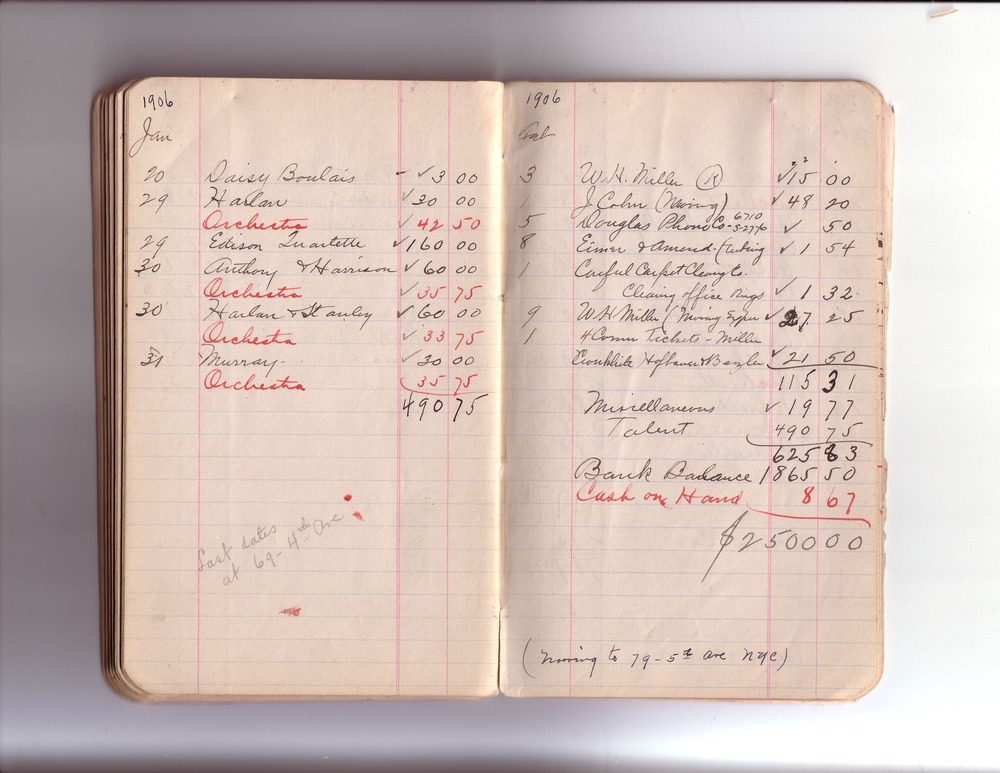 1906
Jan
20 Daisy Boulais - ✓3 00
29 Harlan ✓30 00
Orchestra ✓42 50
29 Edison Quartette ✓160 00
30 Anthony & Harrison ✓60 00
Orchestra ✓35 75
30 Harlan & Stanley ✓60 00
Orchestra ✓33 75
31 Murray - ✓30 00
Orchestra 35 75
490 75
Last dates
at 69 - 4th Ave
1906
Feb
3 W.H. Miller (R) ✓15 00
1 J Cohn (Moving) ✓48 20
5 Douglas Phono Co ✓ 50
8 Eimer & Amend - ✓1 54
1 Careful Carpet Cleang Co.
Cleaing office Rugs ✓1 32
9 W.H. Miller (Moving Expen ✓27 25
1 4 Comm Tickets - Miller
Cronkhite Hofbauer & Bezler ✓21 50
115 31
Miscellaneous ✓19 77
Talent 490 75
625 83
Bank Balance 1865 50
Cash on Hand 8 67
$2500 00
(moving to 79 - 5th ave nyc)